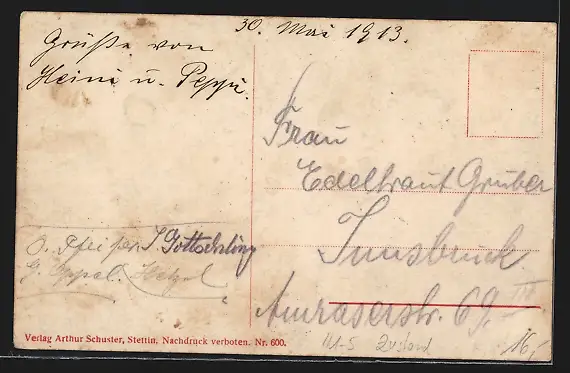 30. Mai 1913.
Grüße von
Heini u. Peppi.
Frau
Edeltraut Gruber
Innsbruck
Amraserstr. 69. III
J. Gottschling
G. Oppel. Hetzel
Verlag Arthur Schuster, Stettin, Nachdruck verboten. Nr. 600.
III-5 Zustand 16,-